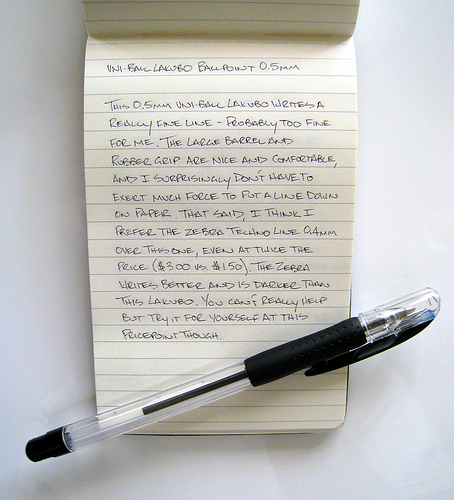 UNI-BALL LAKUBO BALLPOINT 0.5MM
THIS 0.5MM UNI-BALL LAKUBO WRITES A
REALLY FINE LINE - PROBABLY TOO FINE
FOR ME. THE LARGE BARREL AND
RUBBER GRIP ARE NICE AND COMFORTABLE,
AND I SURPRISINGLY DON'T HAVE TO
EXERT MUCH FORCE TO PUT A LINE DOWN
ON PAPER. THAT SAID, I THINK I
PREFER THE ZEBRA TECHNO LINE 0.4MM
OVER THIS ONE, EVEN AT TWICE THE
PRICE ($3.00 VS. $1.50). THE ZEBRA
WRITES BETTER AND IS DARKER THAN
THIS LAKUBO. YOU CAN'T REALLY HELP
BUT TRY IT FOR YOURSELF AT THIS
PRICEPOINT THOUGH.